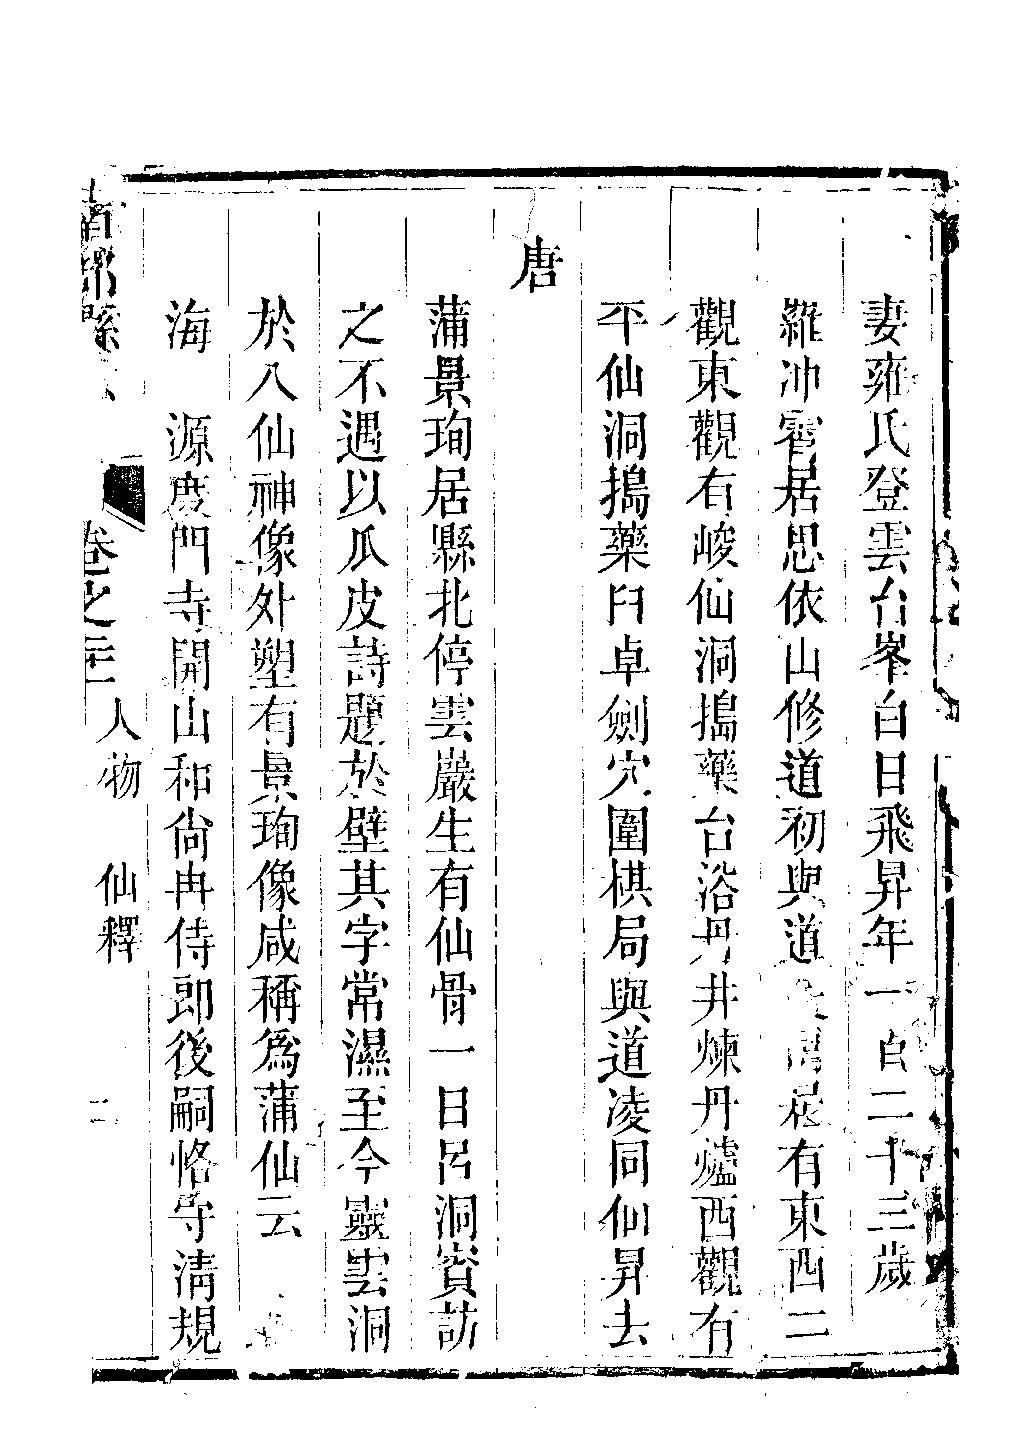 妻雍氏登雲台峯白日飛昇年一百二十三歲
羅冲霄居思依山修道初與道居有東西二
觀東觀有峻仙洞搗藥台浴丹井煉丹爐西觀有
平仙洞搗藥臼卓劍穴圍棋局與道凌同仙昇去
唐
蒲景珣居縣北停雲巖生有仙骨一日呂洞賓訪
之不遇以瓜皮詩題於壁其字常濕至今靈雲洞
於八仙神像外塑有景珣像咸稱爲蒲仙云
海 源度門寺開山和尙冉侍郎後嗣恪守清規
南部縣 卷之二十一 人物 仙釋 二